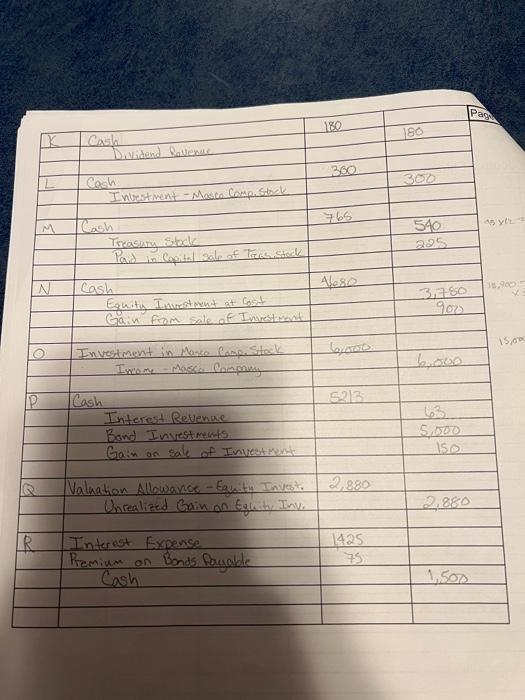 Page
K Cash 180
Dividend Revenue 180
L Cash 300
Investment - Masco Comp. Stock 300
M Cash 765
Treasury Stock 540
Paid in Capital sale of Treas. Stock 225
N Cash 4680
Equity Investment at Cost 3,780
Gain from sale of Investment 900
O Investment in Masco Comp. Stock 6,000
Income - Masco Company 6,000
P Cash 5213
Interest Revenue 63
Bond Investments 5,000
Gain on sale of Investment 150
Q Valuation Allowance - Equity Invest. 2,880
Unrealized Gain on Equity Inv. 2,880
R Interest Expense 1425
Premium on Bonds Payable 75
Cash 1,500